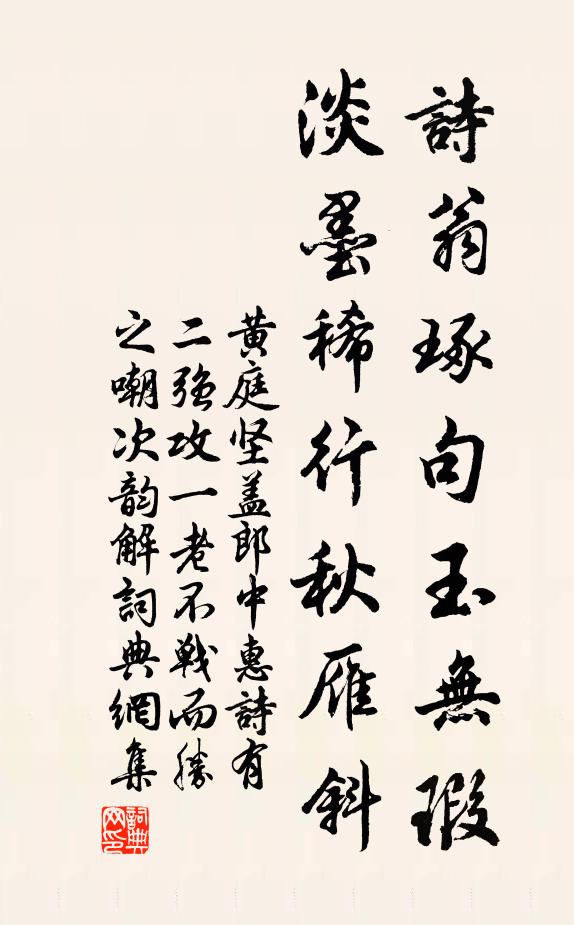 詩翁琢句玉無瑕
淡墨稀行秋雁斜
黄庭坚盖郎中惠詩有
二强攻一老不戦而勝
之嘲次韵解詞典網集
詞典網印